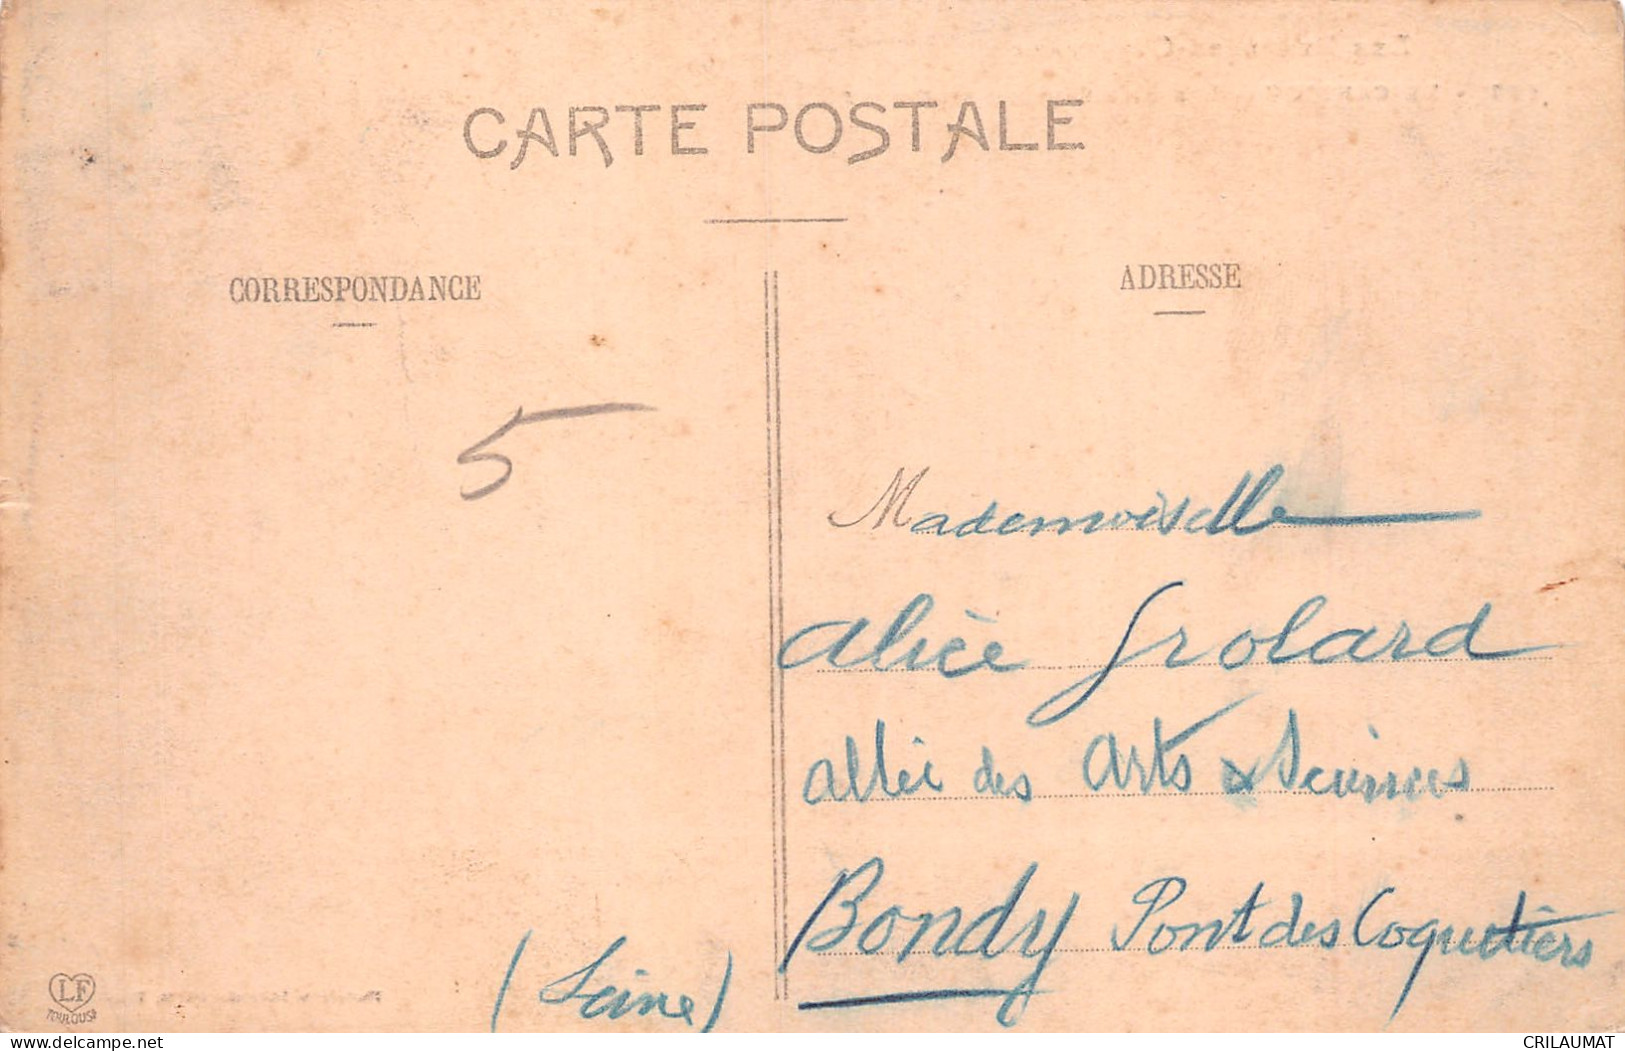 CARTE POSTALE
CORRESPONDANCE
ADRESSE
5
Mademoiselle
Alice Grolard
allée des Arts & Sciences
Bondy Pont des Coquetiers
(Seine)
LF
TOULOUSE
www.delcampe.net
CRILAUMAT